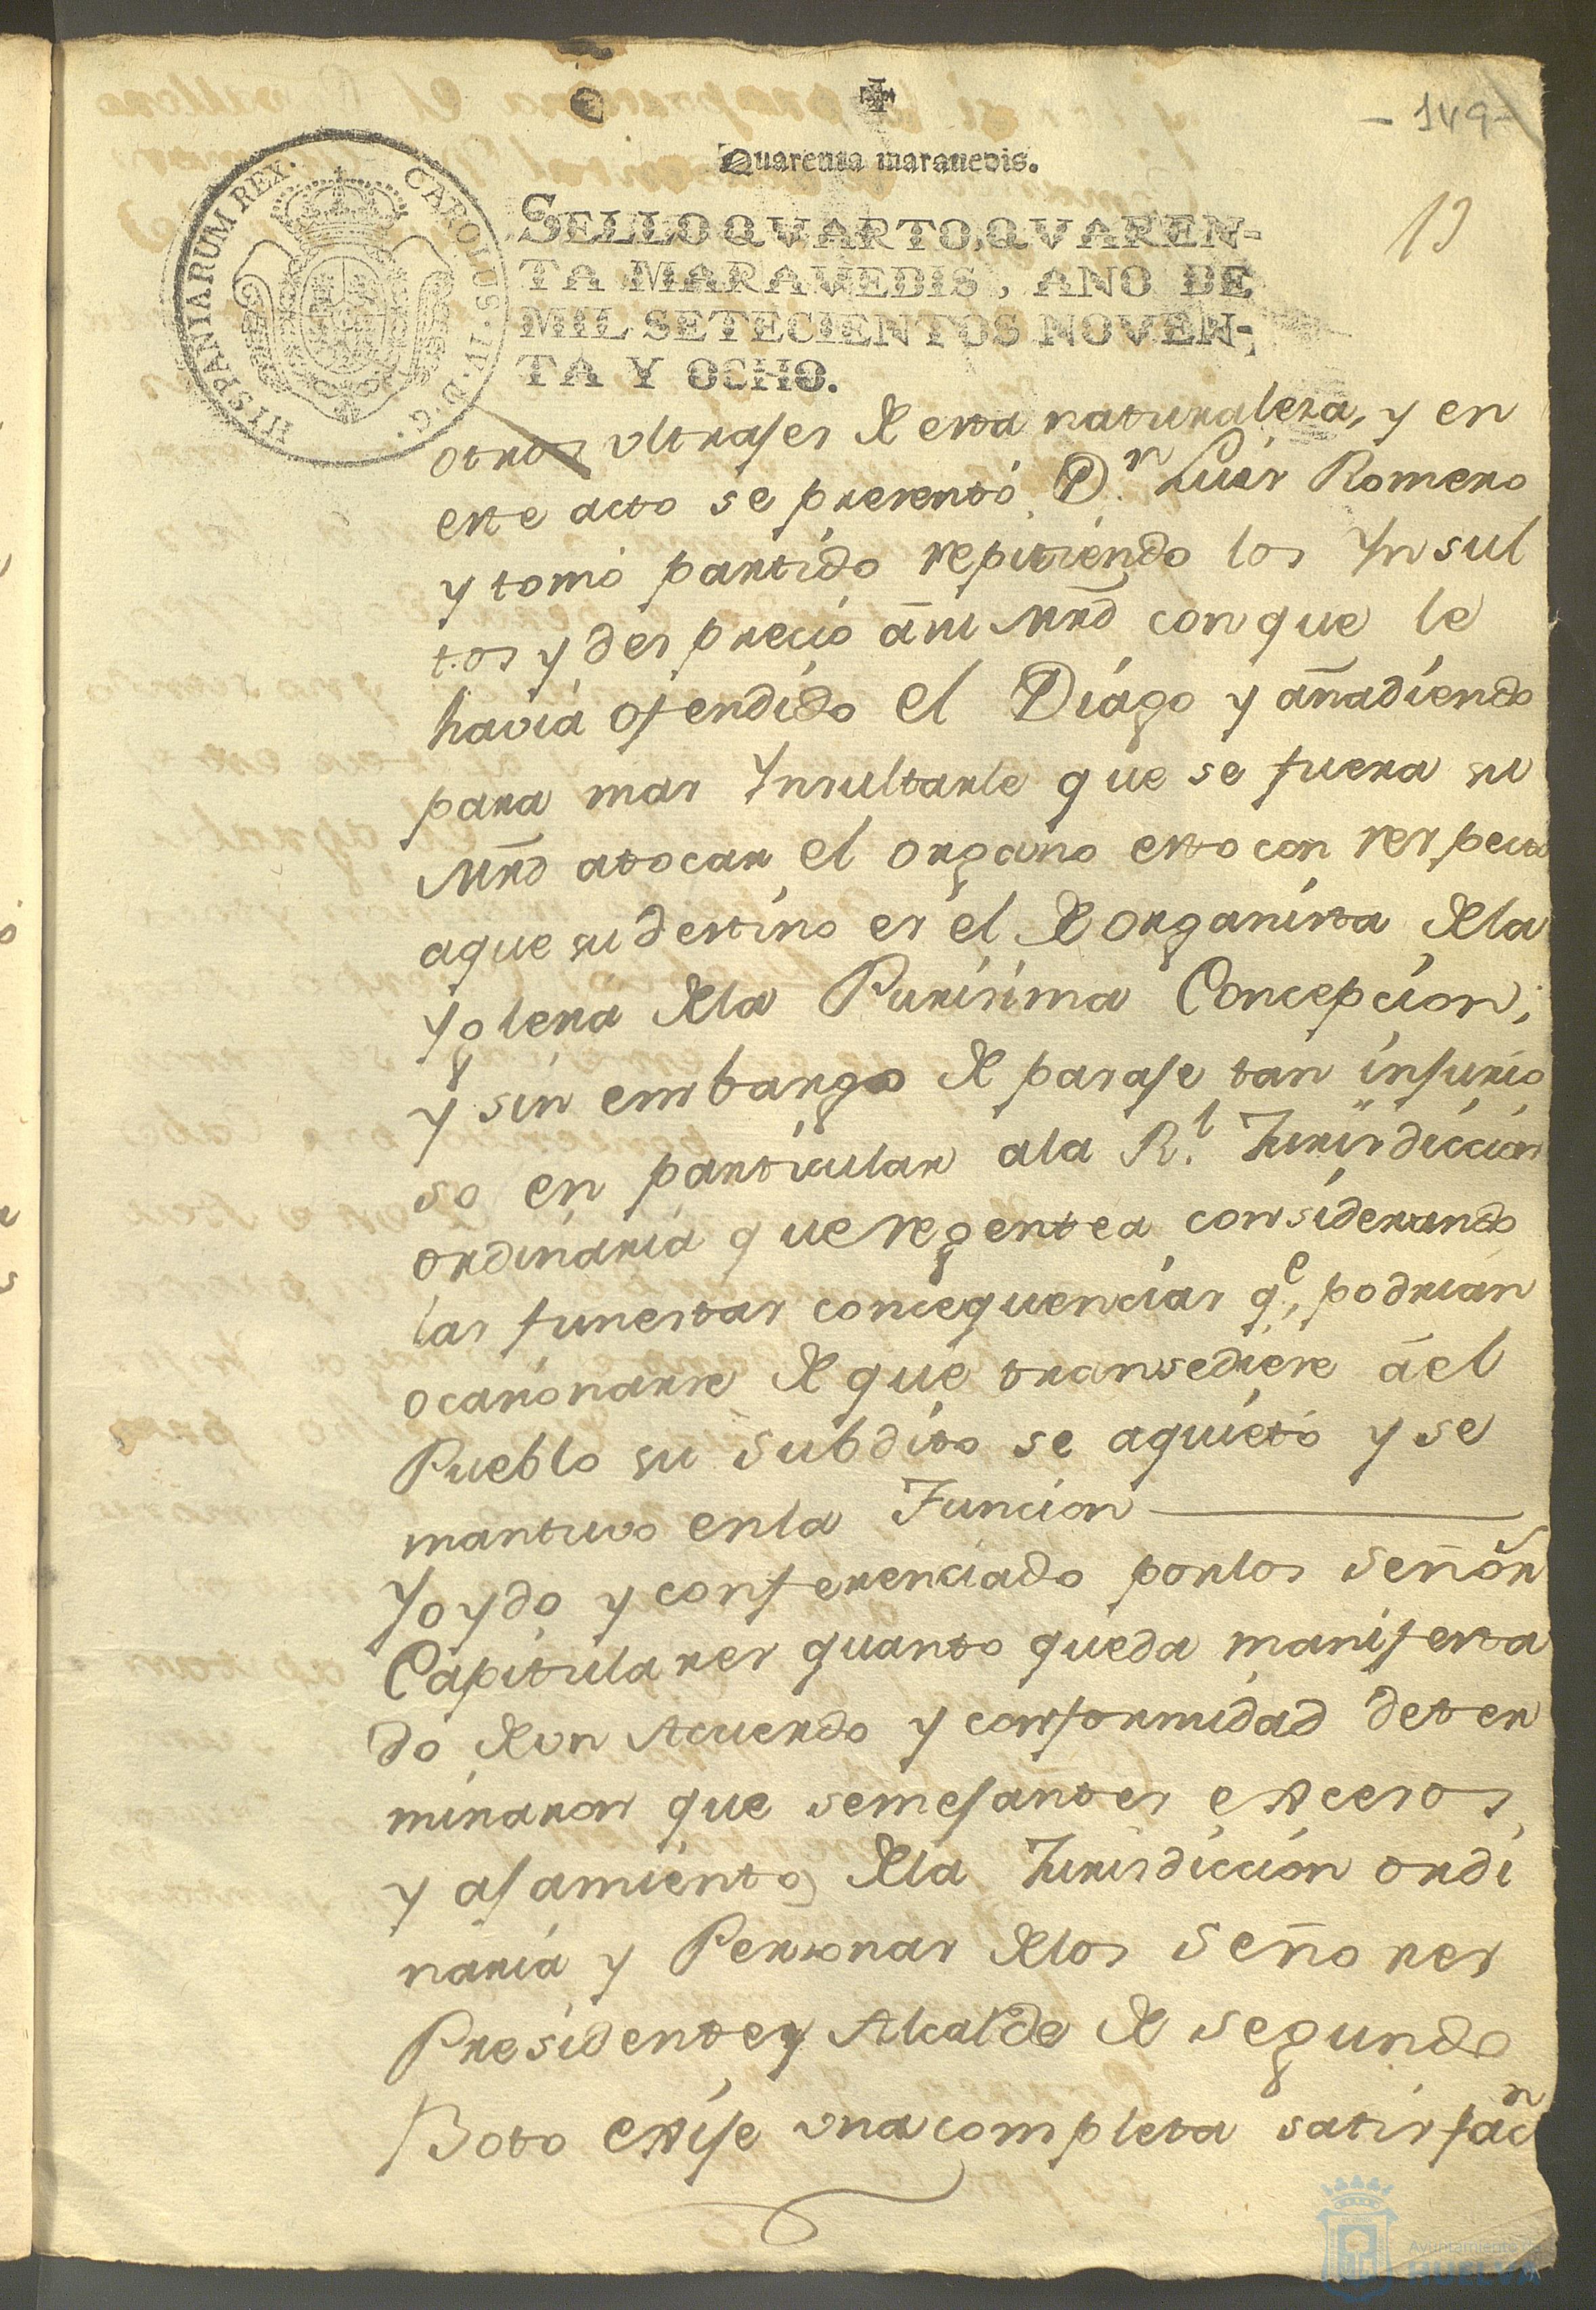 - 149 -
Quarenta maravedis.
13
HISPANIARUM REX. CAROLUS. IV. D. G.
SELLO QVARTO, QVAREN-
TA MARAVEDIS, AÑO DE
MIL SETECIENTOS NOVEN-
TA Y OCHO.
otros ultrajes de esta naturaleza, y en
este acto se presentó D.n Luis Romero
y tomó partido repitiendo los Ynsul
tos y desprecio á su Mrd con que le
havia ofendido el Diago y añadiendo
para mas Ynsultarle que se fuera su
Mrd a tocar el organo esto con respecto
a que su destino es el de Organista de la
Yglesia de la Purisima Concepcion;
y sin embargo de paraje tan injurio
so en particular a la R.l Jurisdiccion
ordinaria que regentea considerando
las funestas concequencias q.e podrian
ocasionarse de que transediere á el
Pueblo su subdito se aquietó y se
mantuvo en la Funcion
Y oydo y conferenciado por los Señor
Capitulares quanto queda manifesta
do de un Acuerdo y conformidad deter
minaron que semejantes excesos
y ajamiento de la Jurisdiccion ordi
naria y Personas de los Señores
Presidente y Alcalde de segundo
Boto exije una completa satisfac.n
Ayuntamiento de
HUELVA